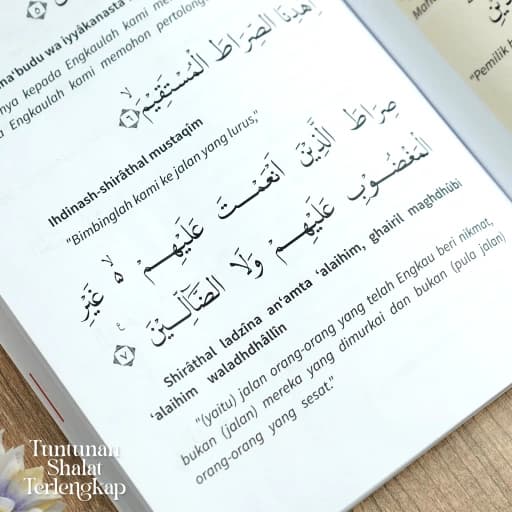 na'budu wa iyyâkanasta
nya kepada Engkaulah kami me
Engkaulah kami memohon pertolong
اِهْدِنَا الصِّرَاطَ الْمُسْتَقِيْمَ ۙ ٦
Ihdinash-shirâthal mustaqim
"Bimbinglah kami ke jalan yang lurus,"
صِرَاطَ الَّذِيْنَ اَنْعَمْتَ عَلَيْهِمْ ۙ ەۙ غَيْرِ
الْمَغْضُوْبِ عَلَيْهِمْ وَلَا الضَّاۤلِّيْنَ ࣖ ٧
Shirâthal ladzina an'amta 'alaihim, ghairil maghdhûbi
'alaihim waladhdhâllin
"(yaitu) jalan orang-orang yang telah Engkau beri nikmat,
bukan (jalan) mereka yang dimurkai dan bukan (pula jalan)
orang-orang yang sesat."
"Pemilik
Tuntunan
Shalat
Terlengkap